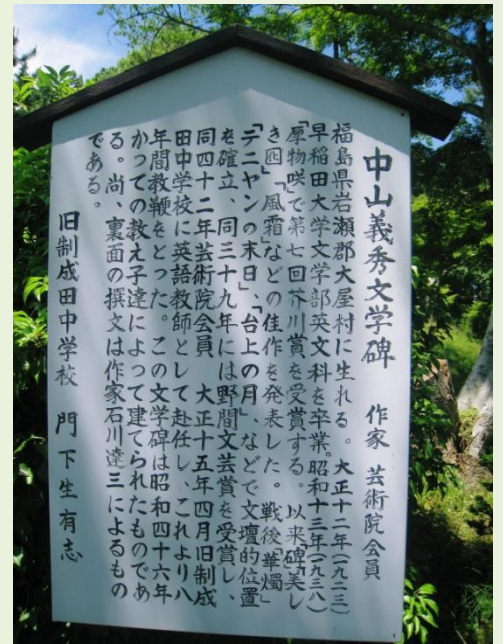 中山義秀文学碑　作家　芸術院会員
福島県岩瀬郡大屋村に生れる。大正十二年(一九二三)
早稲田大学文学部英文科を卒業。昭和十三年(一九三八)
「厚物咲」で第七回芥川賞を受賞する。以来「碑」「美し
き囮」「風霜」などの佳作を発表した。戦後「華燭」
「テニヤンの末日」、「台上の月」、などで文壇的位置
を確立、同三十九年には野間文芸賞を受賞し、
同四十二年芸術院会員　大正十五年四月旧制成
田中学校に英語教師として赴任し、これより八
年間教鞭をとった。この文学碑は昭和四十六年
かっての教え子達によって建てられたものであ
る。尚、裏面の撰文は作家石川達三によるもの
である。
旧制成田中学校　門下生有志